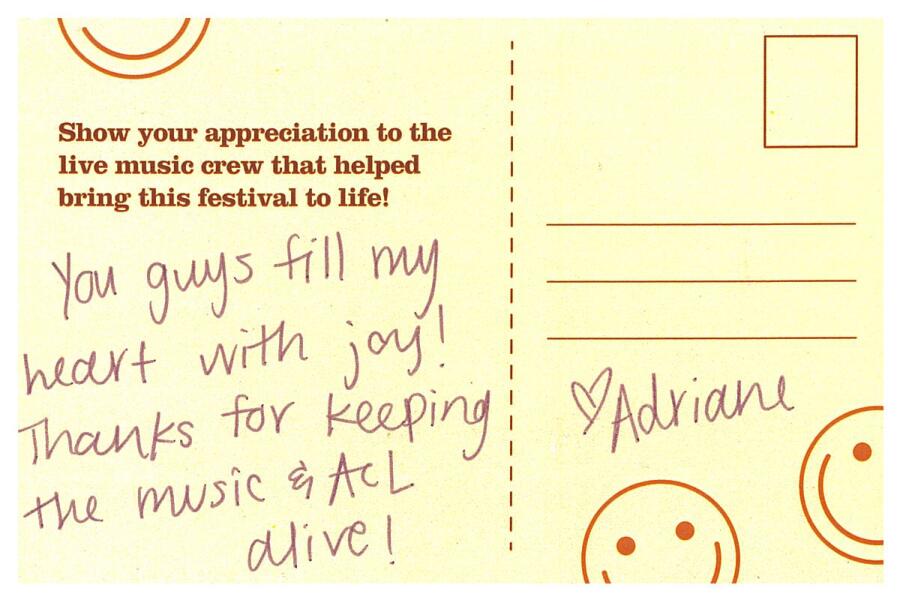 Show your appreciation to the
live music crew that helped
bring this festival to life!
You guys fill my
heart with joy!
Thanks for keeping
the music & ACL
alive!
♡Adriane